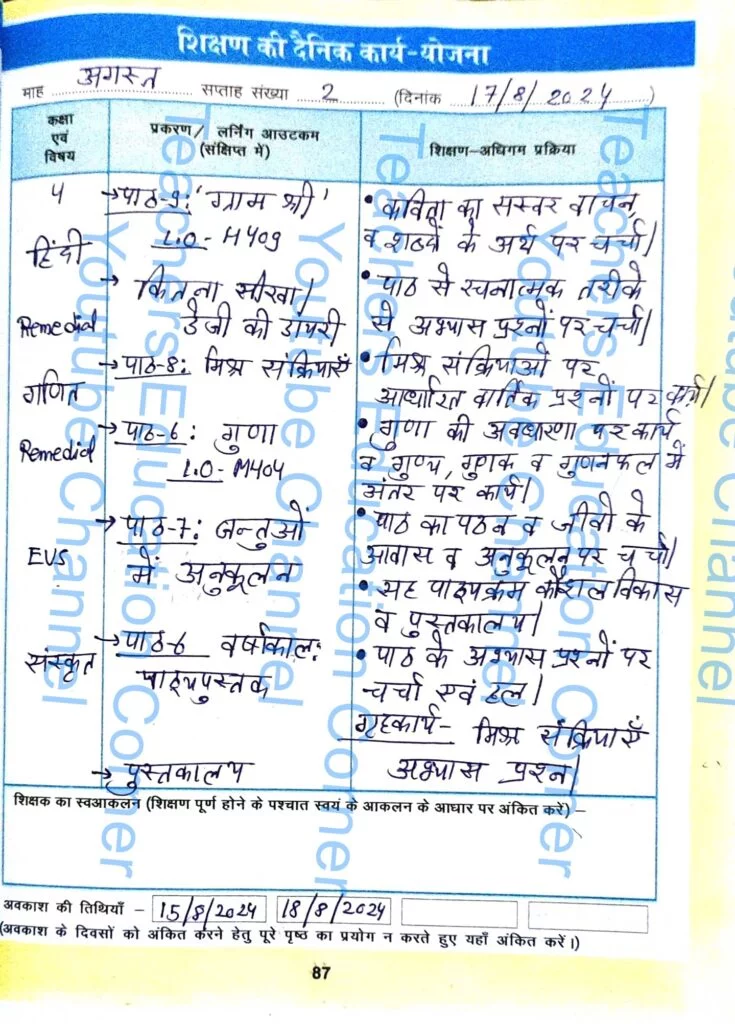 शिक्षण की दैनिक कार्य-योजना
माह अगस्त सप्ताह संख्या 2 (दिनांक 17/8/2024)
कक्षा एवं विषय
प्रकरण/ लर्निंग आउटकम (संक्षिप्त में)
शिक्षण-अधिगम प्रक्रिया
4 →पाठ-9: 'ग्राम श्री' • कविता का सस्वर वाचन,
हिंदी L.O- H409 व शब्दों के अर्थ पर चर्चा।
→ कितना सीखा। • पाठ से रचनात्मक तरीके
Remedial डेजी की डायरी से अभ्यास प्रश्नों पर चर्चा।
गणित →पाठ-8: मिश्र संक्रियाएँ • मिश्र संक्रियाओं पर
आधारित वार्तिक प्रश्नों पर कार्य।
Remedial → पाठ-6: गुणा • गुणा की अवधारणा पर कार्य
L.O- M404 व गुण्य, गुणक व गुणनफल में
अंतर पर कार्य।
EVS → पाठ-7: जन्तुओं • पाठ का पठन व जीवों के
में अनुकूलन आवास व अनुकूलन पर चर्चा।
• सह पाठ्यक्रम कौशल विकास
व पुस्तकालय।
संस्कृत → पाठ-6 वर्षाकाल: • पाठ के अभ्यास प्रश्नों पर
पाठ्यपुस्तक चर्चा एवं हल।
गृहकार्य- मिश्र संक्रियाएँ
→ पुस्तकालय अभ्यास प्रश्न।
शिक्षक का स्वआकलन (शिक्षण पूर्ण होने के पश्चात स्वयं के आकलन के आधार पर अंकित करें) -
अवकाश की तिथियाँ - 15/8/2024 18/8/2024
(अवकाश के दिवसों को अंकित करने हेतु पूरे पृष्ठ का प्रयोग न करते हुए यहाँ अंकित करें।)
87
Teachers Education Corner
Youtube Channel
Teachers Education Corner
Youtube Channel
Teachers Education Corner
Youtube Channel